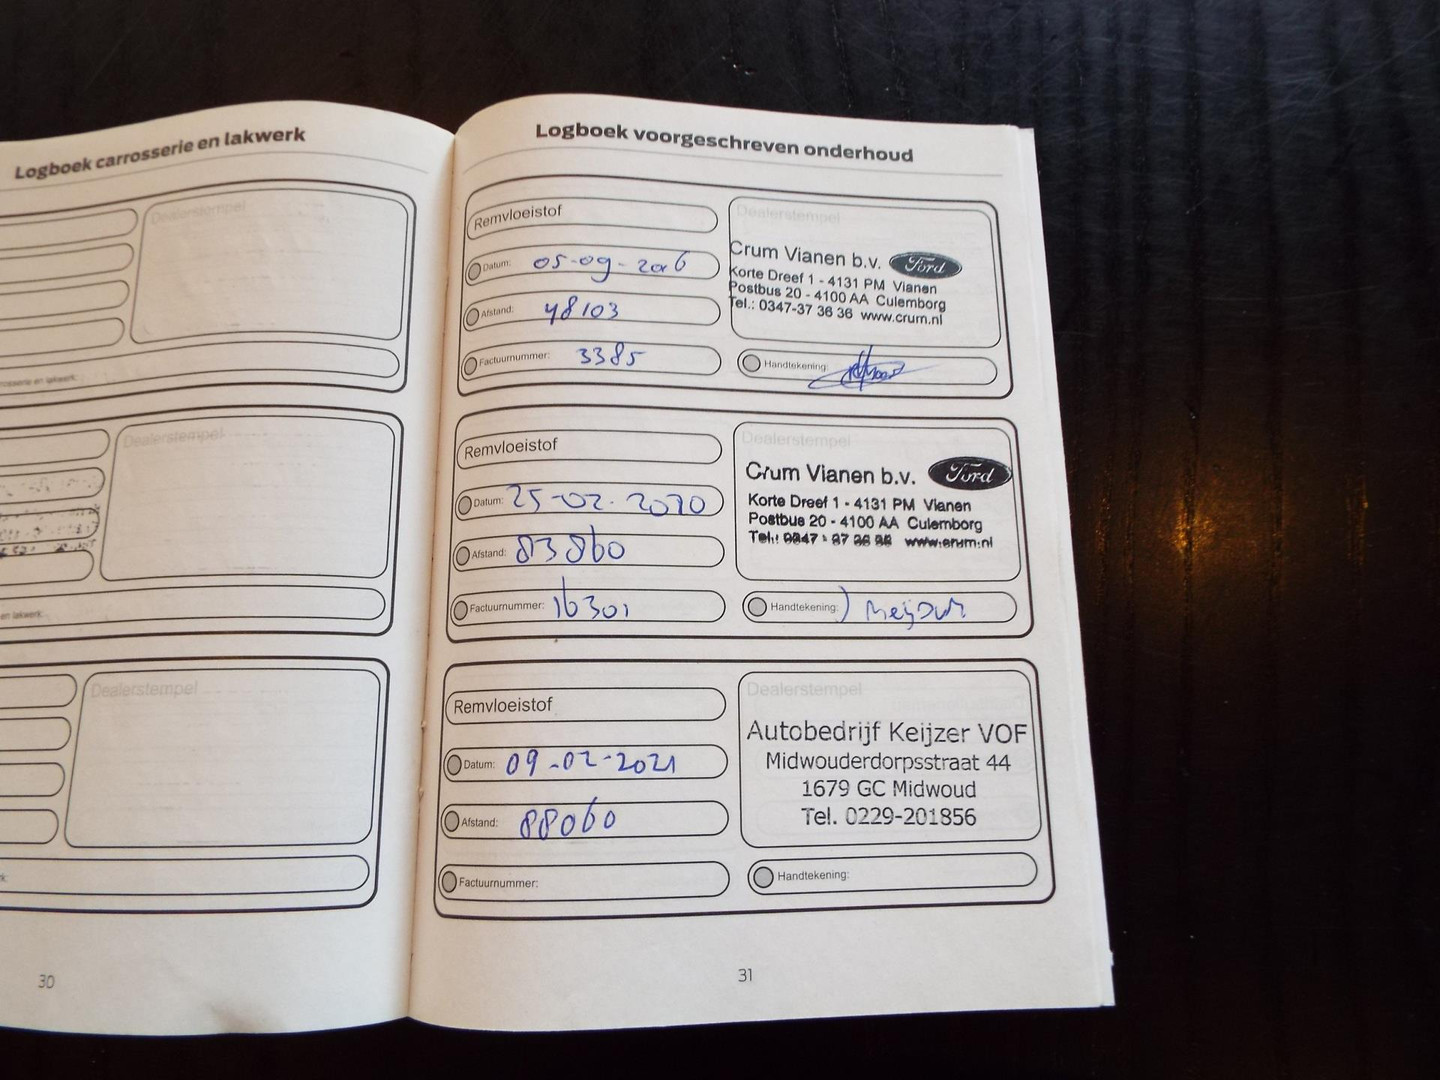 Logboek carrosserie en lakwerk
Dealerstempel
en lakwerk:
Dealerstempel
en lakwerk:
Dealerstempel
30
Logboek voorgeschreven onderhoud
Remvloeistof
Datum: 05-09-2016
Afstand: 48103
Factuurnummer: 3385
Dealerstempel
Crum Vianen b.v. Ford
Korte Dreef 1 - 4131 PM Vianen
Postbus 20 - 4100 AA Culemborg
Tel.: 0347-37 36 36 www.crum.nl
Handtekening:
Remvloeistof
Datum: 25-02-2020
Afstand: 83860
Factuurnummer: 16301
Dealerstempel
Crum Vianen b.v. Ford
Korte Dreef 1 - 4131 PM Vianen
Postbus 20 - 4100 AA Culemborg
Tel.: 0347 - 37 36 36 www.crum.nl
Handtekening:
Remvloeistof
Datum: 09-02-2021
Afstand: 88060
Factuurnummer:
Dealerstempel
Autobedrijf Keijzer VOF
Midwouderdorpsstraat 44
1679 GC Midwoud
Tel. 0229-201856
Handtekening:
31